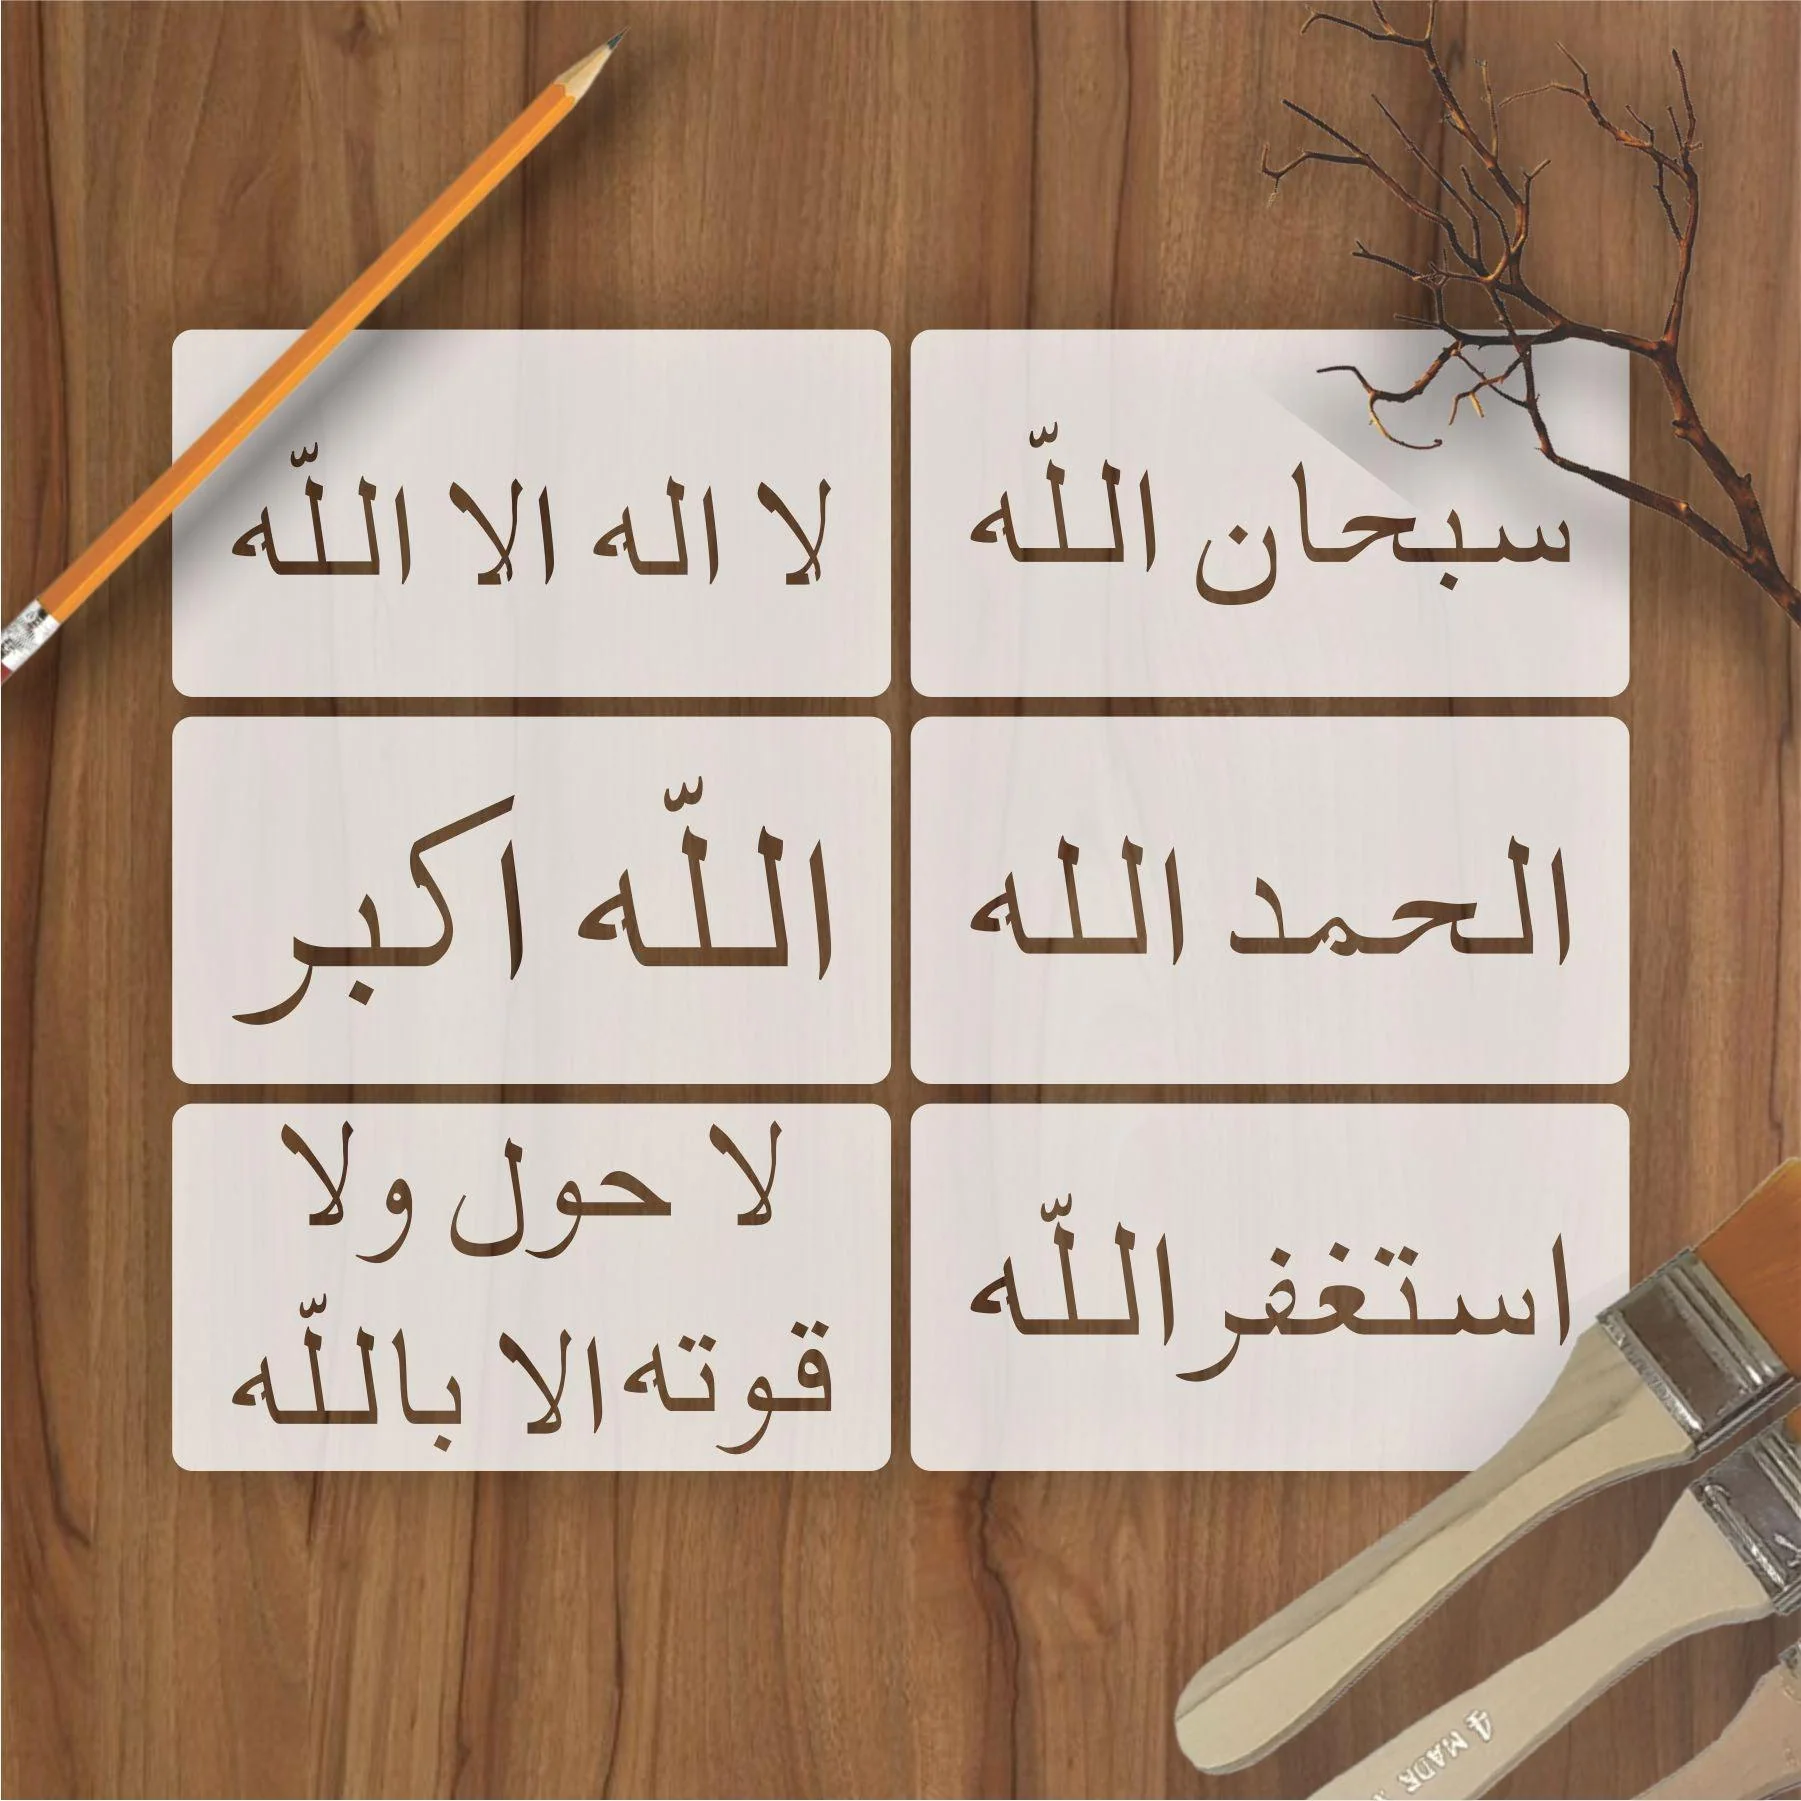 سبحان اللّه
لا اله الا اللّه
الحمد الله
اللّه اكبر
استغفر اللّه
لا حول ولا
قوته الا باللّه
4 MADE